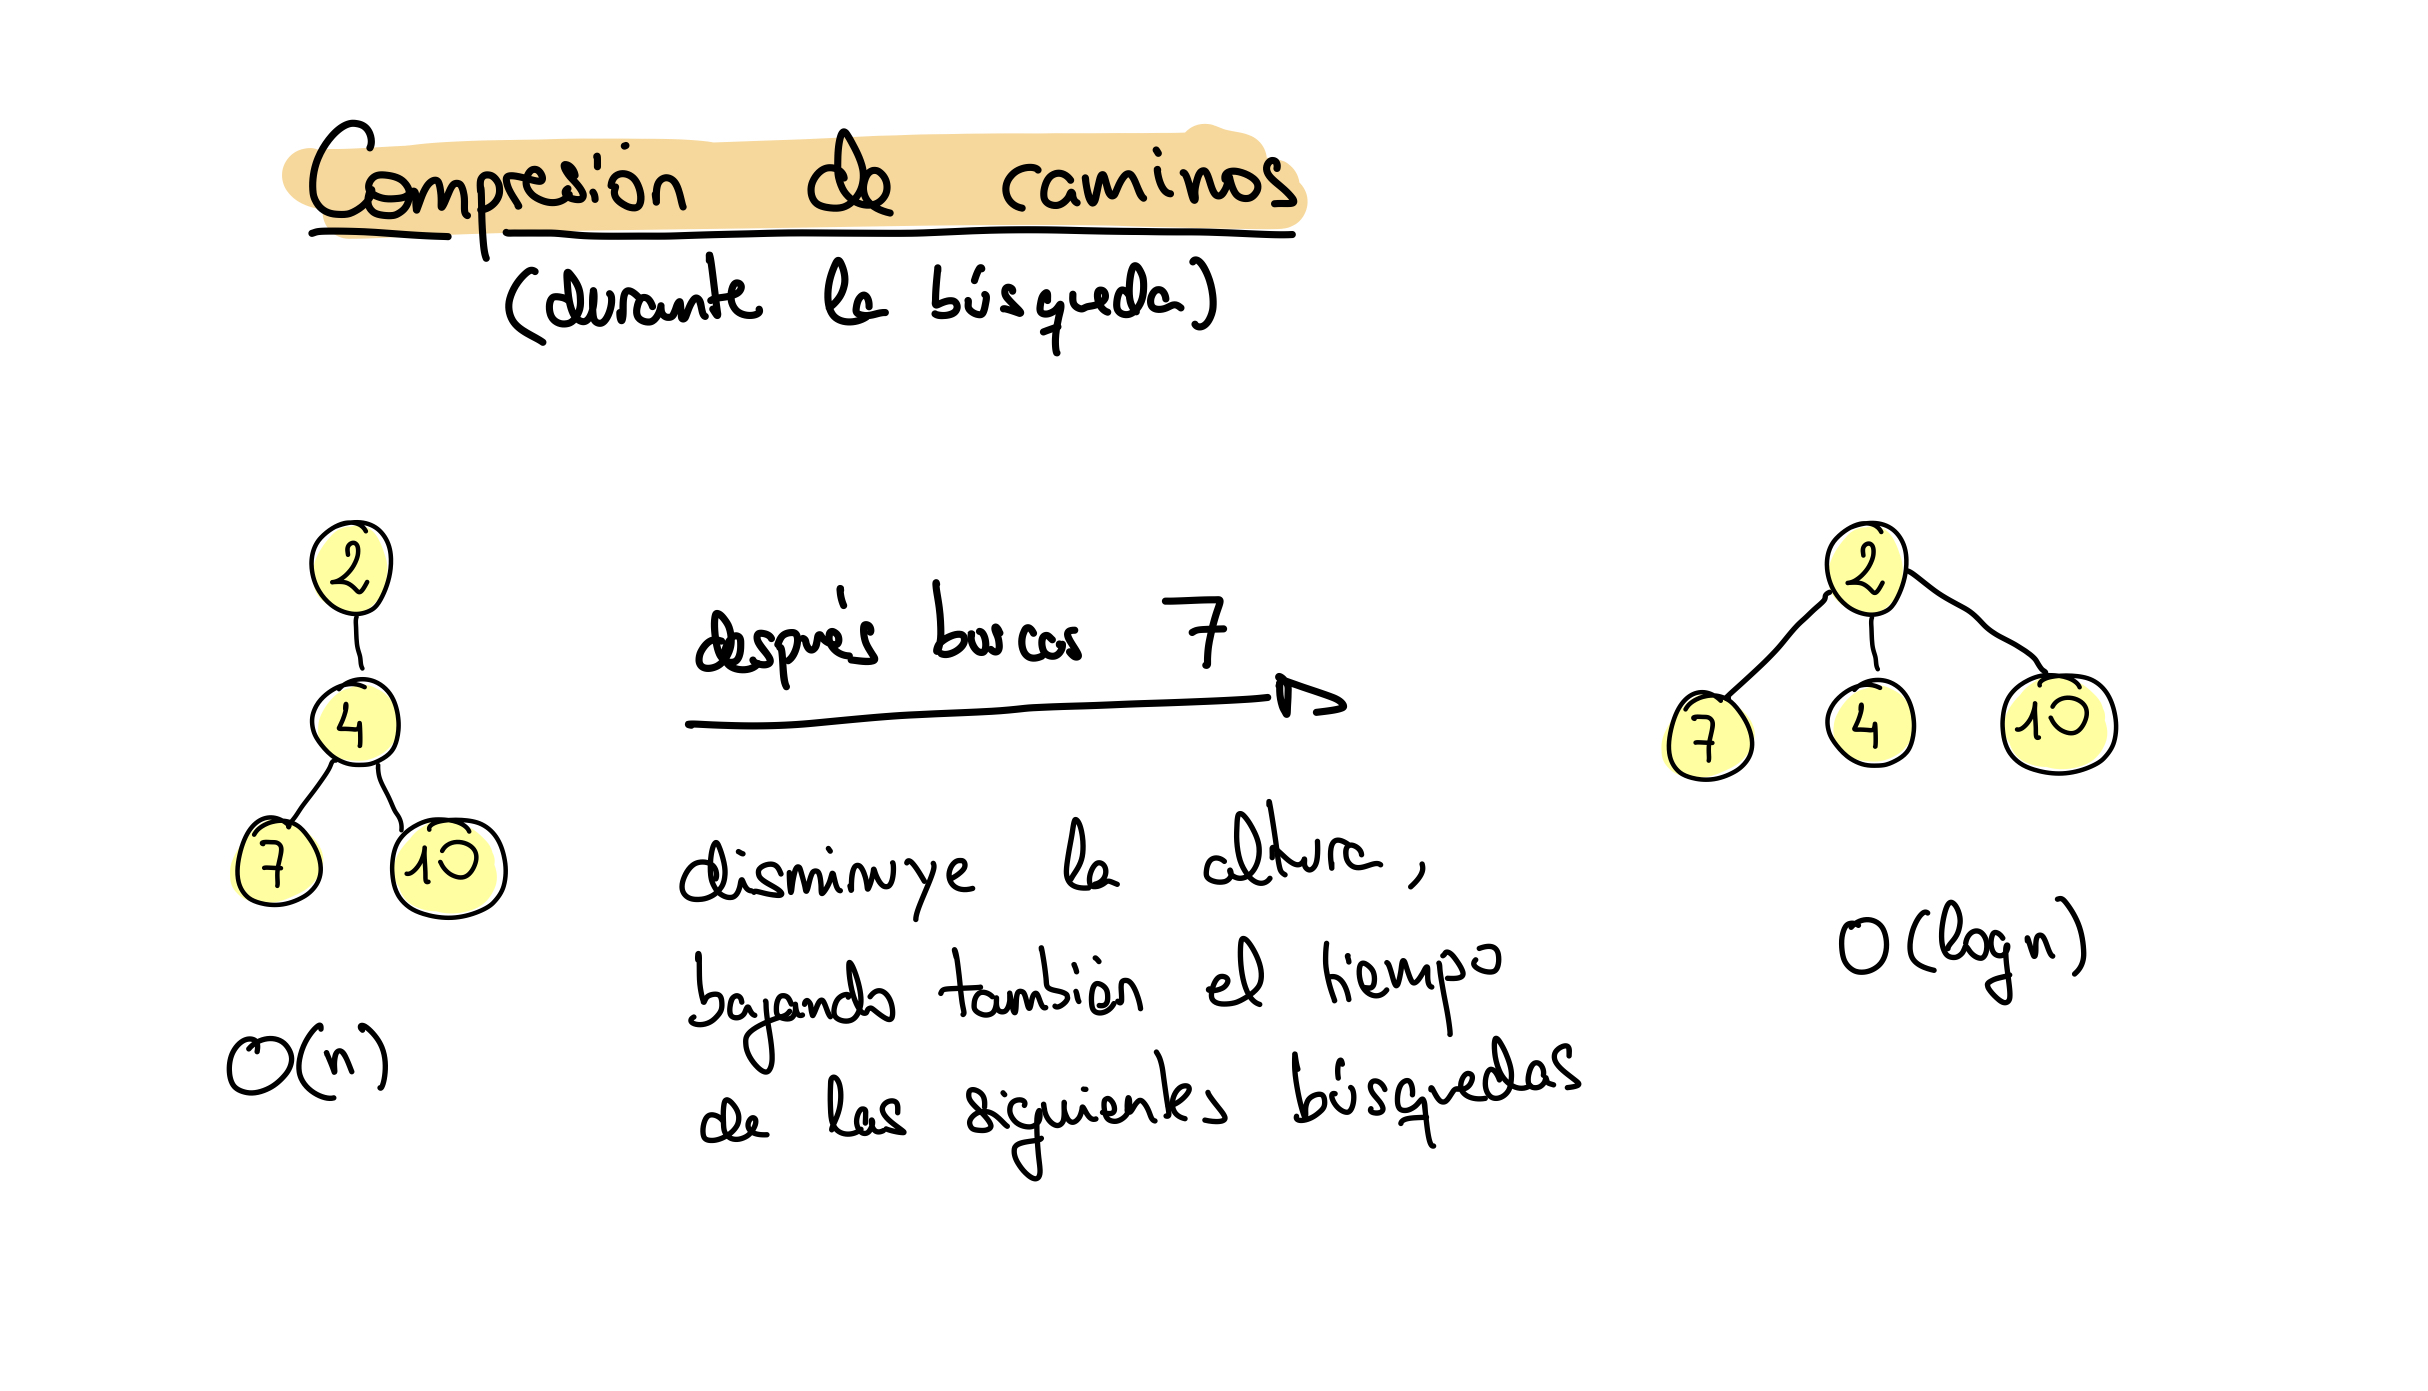 Compresión de caminos
(durante la búsqueda)
2
4
7 10
O(n)
después buscas 7
disminuye la altura,
bajando también el tiempo
de las siguientes búsquedas
2
7 4 10
O(log n)